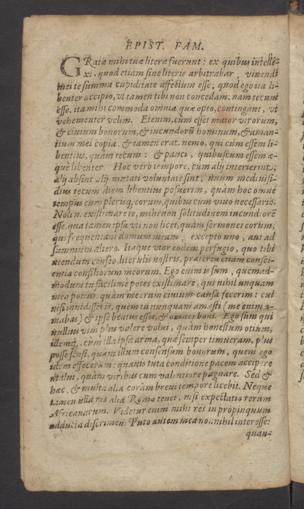 EPIST. FAM.
GRatæ mihi tuæ literæ fuerunt: ex quibus intelle-
xi, quod etiam sine literis arbitrabar, videndi
mei te summa cupiditate affectum esse; quod ego ita li-
benter accipio, ut tamen tibi non concedam: nam tecum
esse, ita mihi commoda omnia quæ opto, contingant, ut
vehementer velim. Etenim, cum esset maior virorum,
& civium bonorum, & iucundorum hominum, & aman-
tium mei copia: tamen erat nemo, qui cum essem li-
bentius, quam tecum: & pauci, quibuscum essem æ-
que libenter. Hoc vero tempore, cum alij interierint,
alij absint, alij mutati voluntate sint; unum medius fi-
dius tecum diem libentius posuerim, quam hoc omne
tempus cum plerisque eorum, quibus cum vivo necessario.
Noli n. existimare
esse, qua tamen ipsa uti non licet,
excepto uno, aut ad
summum altero. Itaque utor eodem perfugio, quo tibi
utendum censeo, literulis nostris, præterea etiam consci-
entia consiliorum meorum. Ego enim is sum, quemad-
modum tu facillime potes existimare, qui nihil unquam
mea potius, quam meorum civium causa fecerim: cui
nisi invidisset is, quem tu nunquam amasti (me enim a-
mabas) & ipse beatus esset, & omnes boni. Ego sum qui
nullius vim plus valere volui, quam honestum otium,
idemque, cum illa ipsa arma, quæ semper timueram, plus
posse sensi, quam illum consensum bonorum, quem ego
idem effeceram; quavis tuta conditione pacem accipere
malui, quam viribus cum valentiore pugnare. Sed &
hæc, & multa alia coram brevi tempore licebit. Neque
tamen ulla res alia Romæ tenet, nisi expectatio rerum
Africanarum. Videtur enim mihi res in propinquum
adducta discrimen: Puto autem mea non nihil interesse:
quan-